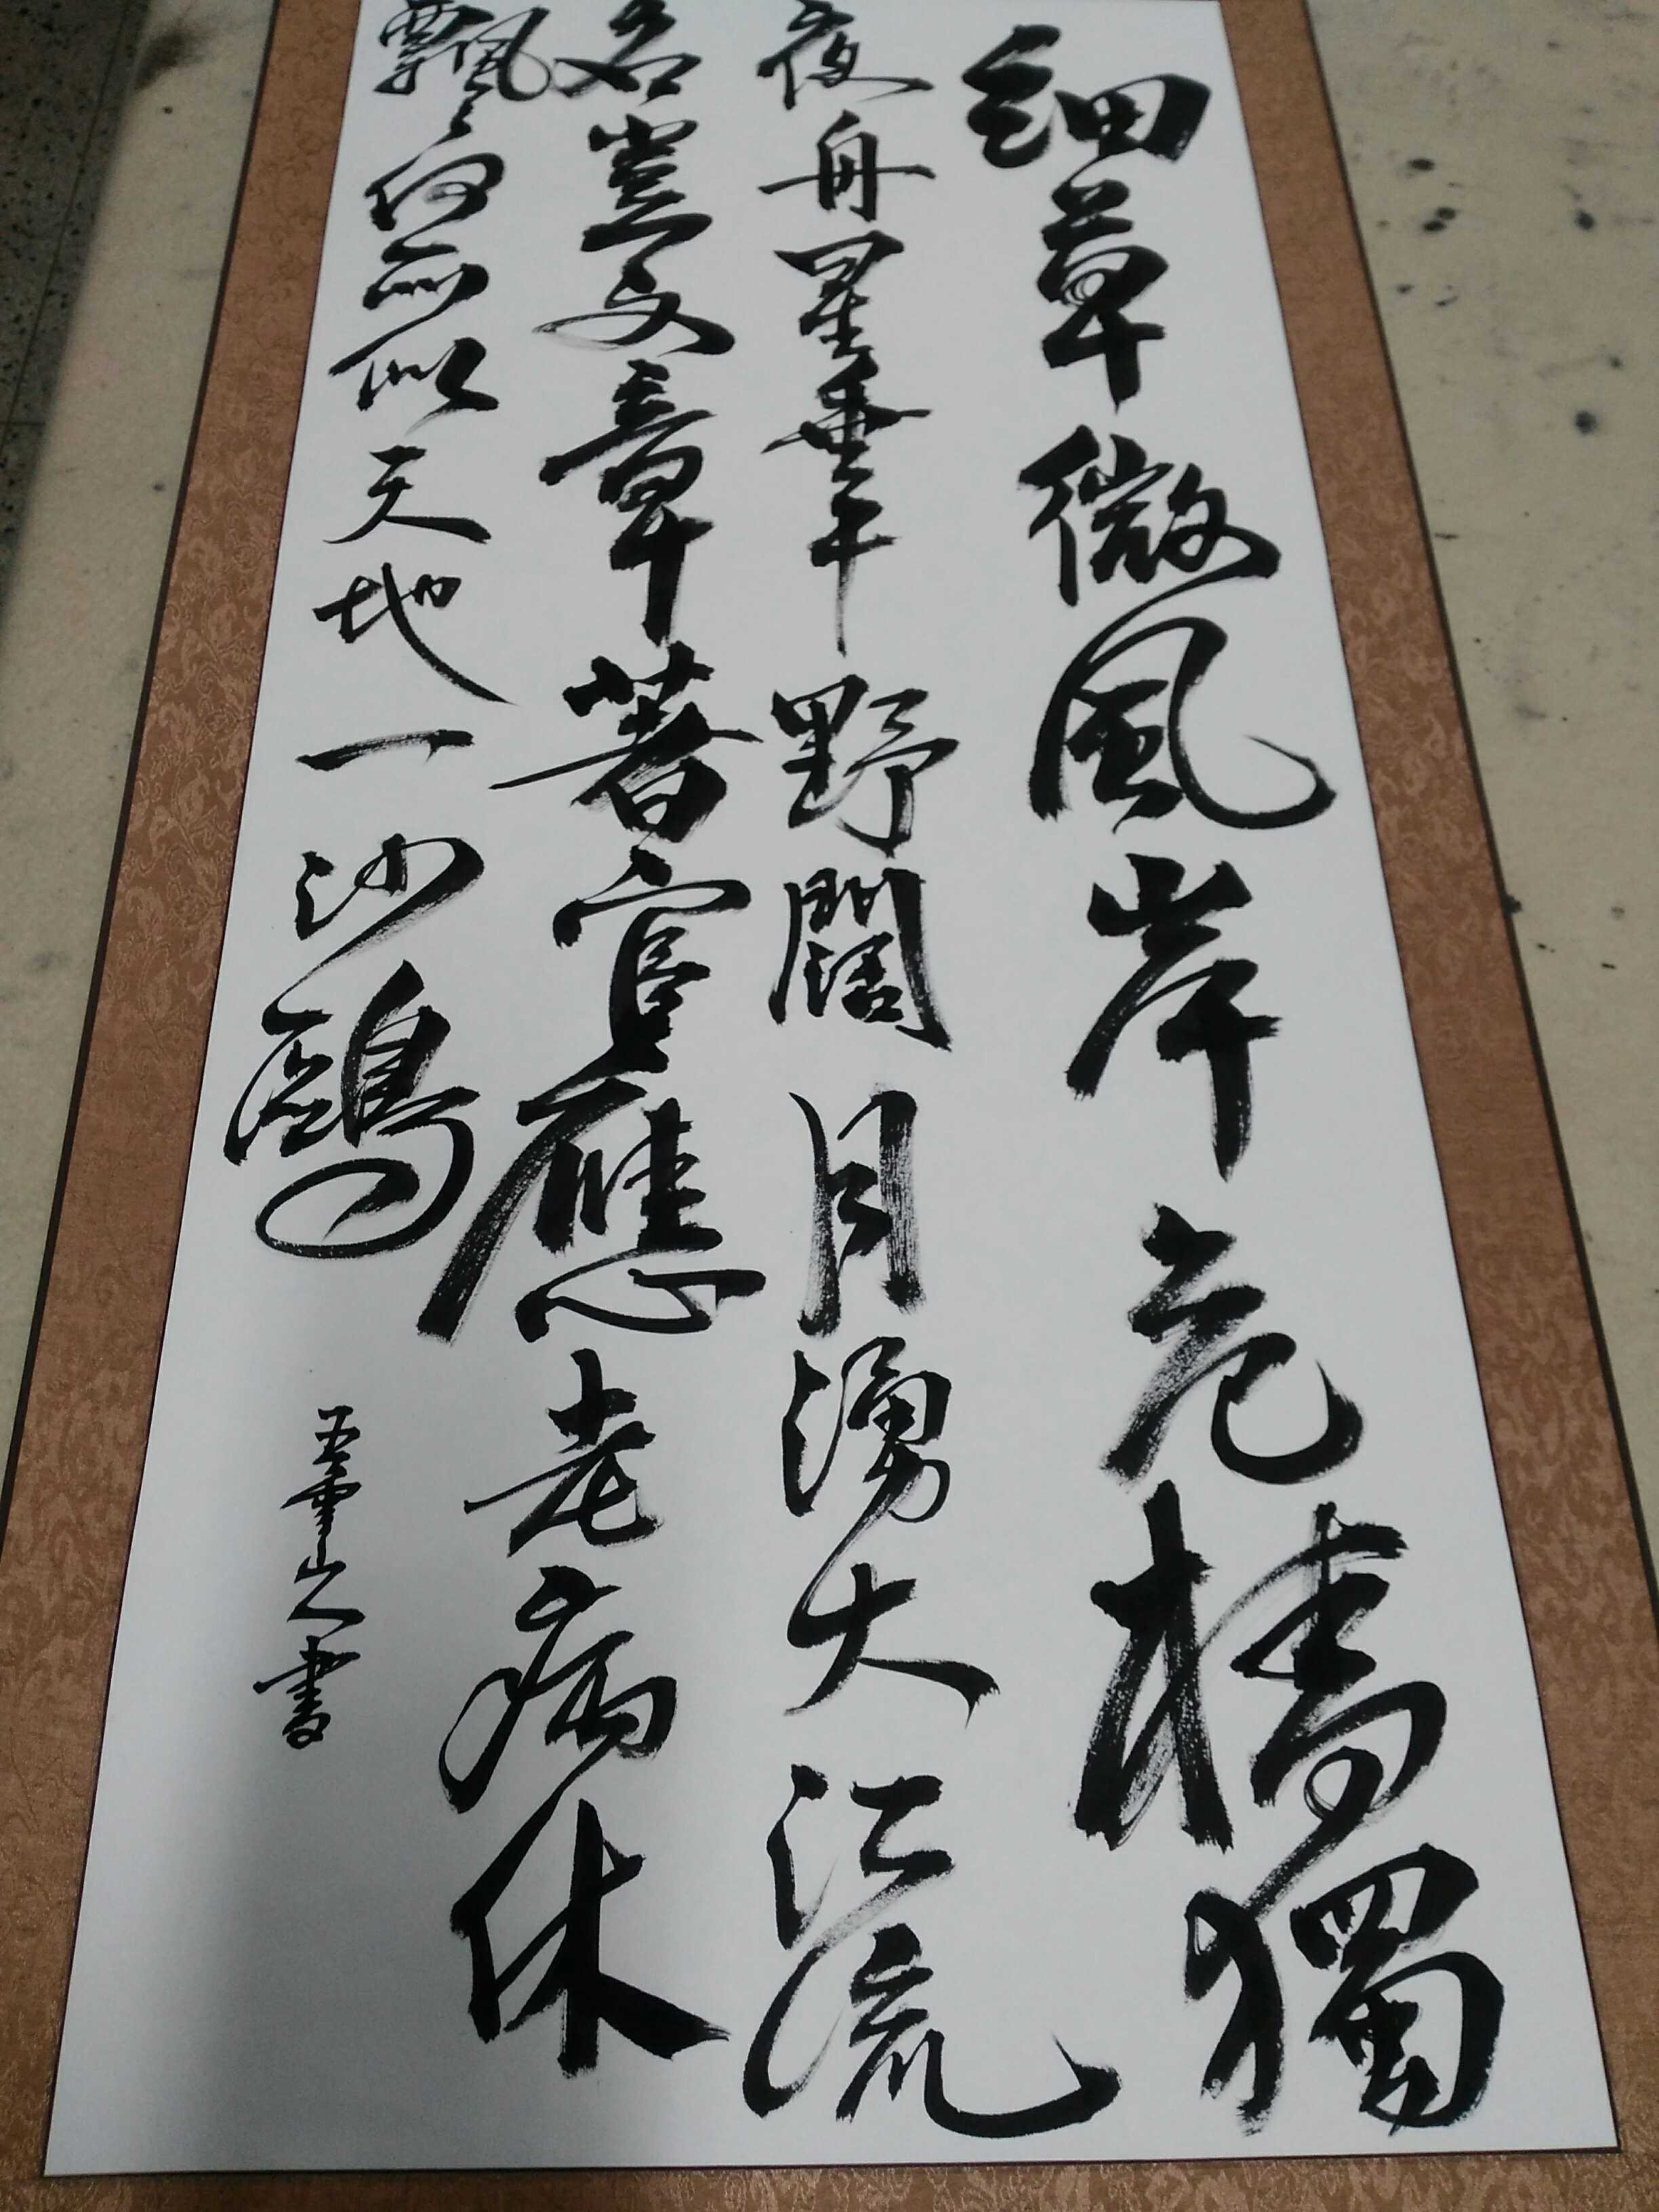 細草微風岸危檣獨
夜舟星垂平野闊月湧大江流
名豈文章著官應老病休
飄〻何所似天地一沙鷗
五雲山人書